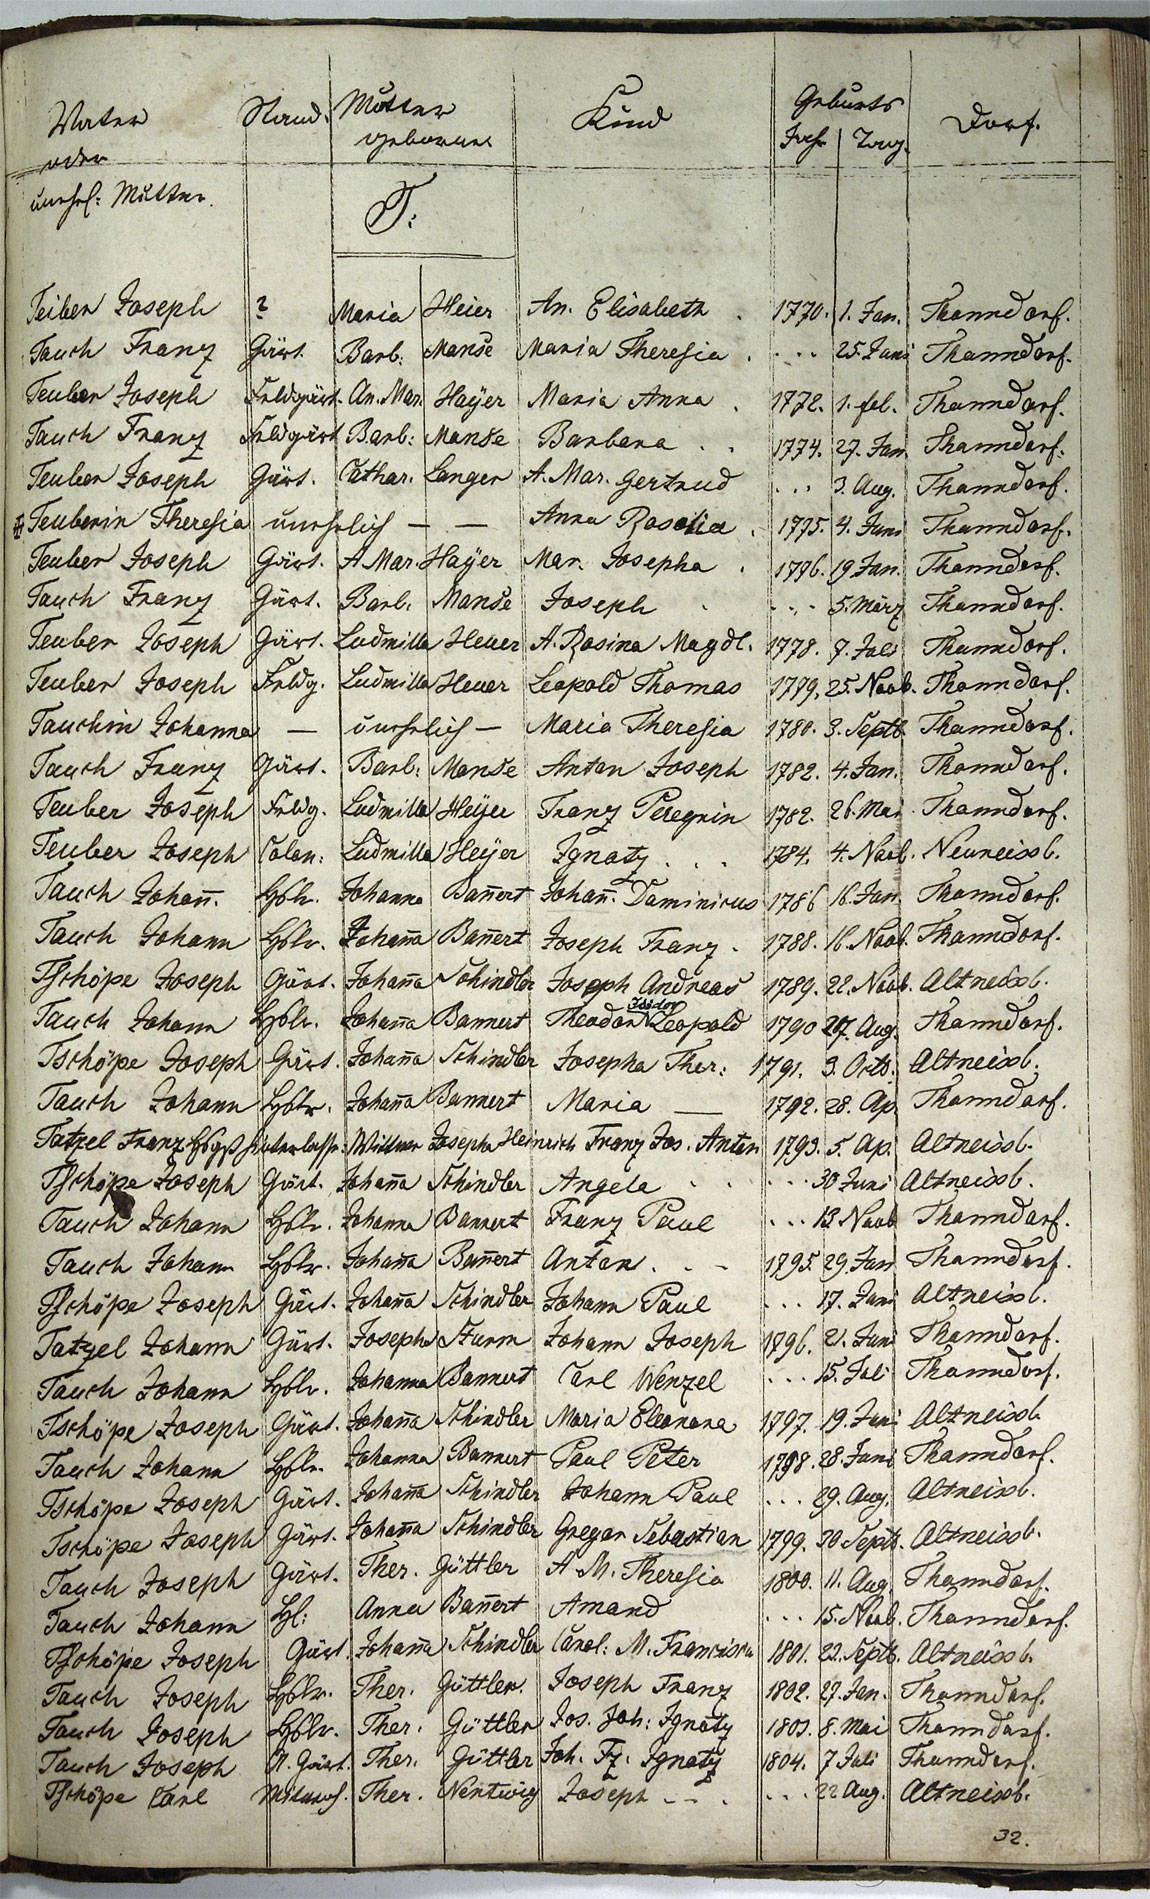 Vater Stand. Mutter Kind Geburts Dorf.
oder geborne Jahr Tag.
unehl: Mutter.
T:
Teiber Joseph ? Maria Heier An. Elisabeth . 1770. 1. Jan. Thanndorf.
Tauch Franz Gärt. Barb: Manse Maria Theresia . . . . 25. Juni Thanndorf.
Teuber Joseph Feldgärt. An. Mar. Hayer Maria Anna . 1772. 1. feb. Thanndorf.
Tauch Franz Feldgärt Barb: Manse Barbara . . 1774. 27. Jan. Thanndorf.
Teuber Joseph Gärt. Cathar. Langer A. Mar. Gertrud . . . 3. Aug. Thanndorf.
Teuberin Theresia unehrlich — — Anna Rosalia . 1775. 4. Juni Thanndorf.
Teuber Joseph Gärt. A Mar. Hayer Mar. Josepha . 1776. 19 Jan. Thanndorf.
Tauch Franz Gärt. Barb. Manse Joseph . . . . 5. März Thanndorf.
Teuber Joseph Gärt. Ludmilla Heuer A. Rosina Magdl. 1778. 7. Juli Thanndorf.
Teuber Joseph Feldg. Ludmilla Heuer Leopold Thomas 1779. 25. Novb. Thanndorf.
Tauchin Johanna — unehrlich — Maria Theresia 1780. 3. Septb. Thanndorf.
Tauch Franz Gärt. Barb: Manse Anton Joseph 1782. 4. Jan. Thanndorf.
Teuber Joseph Feldg. Ludmilla Heyer Franz Peregrin 1782. 26. Mai Thanndorf.
Teuber Joseph Colon: Ludmilla Heyer Ignatz . . . 1784. 4. Novb. Neuneissb.
Tauch Johan̄. Hslr. Johanna Ban̄ert Johan̄. Dominicus 1786 16. Jan. Thanndorf.
Tauch Johann Hslr. Johan̄a Ban̄ert Joseph Franz . 1788. 16. Novb. Thanndorf.
Tschöpe Joseph Gärt. Johan̄a Schindler Joseph Andreas 1789. 22. Novb. Altneissb.
Tauch Johann Hslr. Johan̄a Bannert Theodor Isidor Leopold 1790 27. Aug. Thanndorf.
Tschöpe Joseph Gärt. Johan̄a Schindler Josepha Ther: 1791. 3. Octb. Altneissb.
Tauch Johann Hslr. Johan̄a Bannert Maria — 1792. 28. Ap. Thanndorf.
Tatzel Franz hinterlass. Wittwe Josepha Heinrich Franz Jos. Anton 1793. 5. Ap. Altneissb.
Tschöpe Joseph Gärt. Johan̄a Schindler Angela . . . . . 30 Juni Altneissb.
Tauch Johann Hslr. Johanna Bannert Franz Paul . . . 13 Novb Thanndorf.
Tauch Johann Hslr. Johan̄a Ban̄ert Anton . . – 1795. 29. Jan Thanndorf.
Tschöpe Joseph Gärt. Johan̄a Schindler Johann Paul . . . 17. Juni Altneissb.
Tatzel Johann Gärt. Josepha Sturm Johann Joseph 1796. 21. Juni Thanndorf.
Tauch Johann Hslr. Johanna Bannert Carl Wenzel . . . 15. Juli Thanndorf.
Tschöpe Joseph Gärt. Johan̄a Schindler Maria Eleonora 1797. 19. Juni Altneissb.
Tauch Johann Hslr. Johanna Bannert Paul Peter 1798. 28. Juni Thanndorf.
Tschöpe Joseph Gärt. Johan̄a Schindler Johann Paul . . . 29. Aug. Altneissb.
Tschöpe Joseph Gärt. Johan̄a Schindler Gregor Sebastian 1799. 30 Septb. Altneissb.
Tauch Joseph Gärt. Ther. Güttler A. M. Theresia 1800. 11. Aug. Thanndorf.
Tauch Johann Hl: Anna Ban̄ert Amand . . . 15. Novb. Thanndorf.
Tschöpe Joseph Gärt. Johan̄a Schindler Carol: M. Francisca 1801. 22. Septb. Altneissb.
Tauch Joseph Hslr. Ther. Güttler. Joseph Franz 1802. 27. Jan. Thanndorf.
Tauch Joseph Hslr. Ther. Güttler Jos. Joh: Ignatz 1803. 8. Mai Thanndorf.
Tauch Joseph N. Gärt. Ther. Güttler Joh. Fz. Ignatz 1804. 7 Juli Thanndorf.
Tschöpe Carl Ther. Nentwig Joseph – – . . . . 22 Aug. Altneissb.
32.